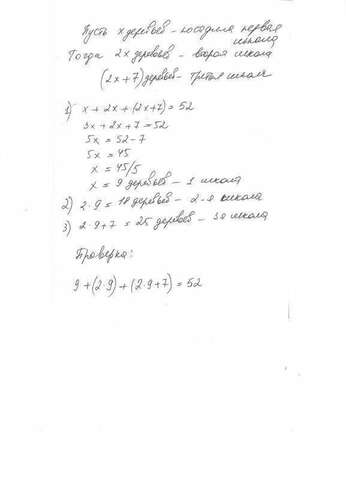 Пусть х деревьев - посадила первая
школа
Тогда 2х деревьев - вторая школа
(2х+7) деревьев - третья школа
1) х + 2х + (2х+7) = 52
3х + 2х + 7 = 52
5х = 52 - 7
5х = 45
х = 45/5
х = 9 деревьев - 1 школа
2) 2·9 = 18 деревьев - 2-я школа
3) 2·9+7 = 25 деревьев - 3я школа
Проверка:
9 + (2·9) + (2·9+7) = 52